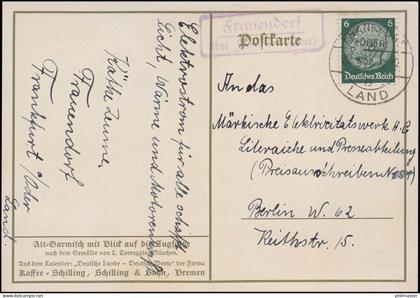 Frauendorf
über (Oder)
Postkarte
6 6
Deutsches Reich
FRANKFURT
LAND
Elektrostrom für alle schafft
Licht, Wärme und Motorenkraft
Käthe Zeume.
Frauendorf
Frankfurt a/Oder
Land.
An das
Märkische Elektrizitätswerk A.G.
Literarische und Presseabteilung
(Preisausschreiben
Berlin W. 62
Keithstr. 15.
Alt-Garmisch mit Blick auf die Zugspitze
nach dem Gemälde von L. Correggio, München.
Aus dem Kalender: „Deutsche Lande – Deutsche Worte" der Firma
Kaffee-Schilling, Schilling & Sohn, Bremen